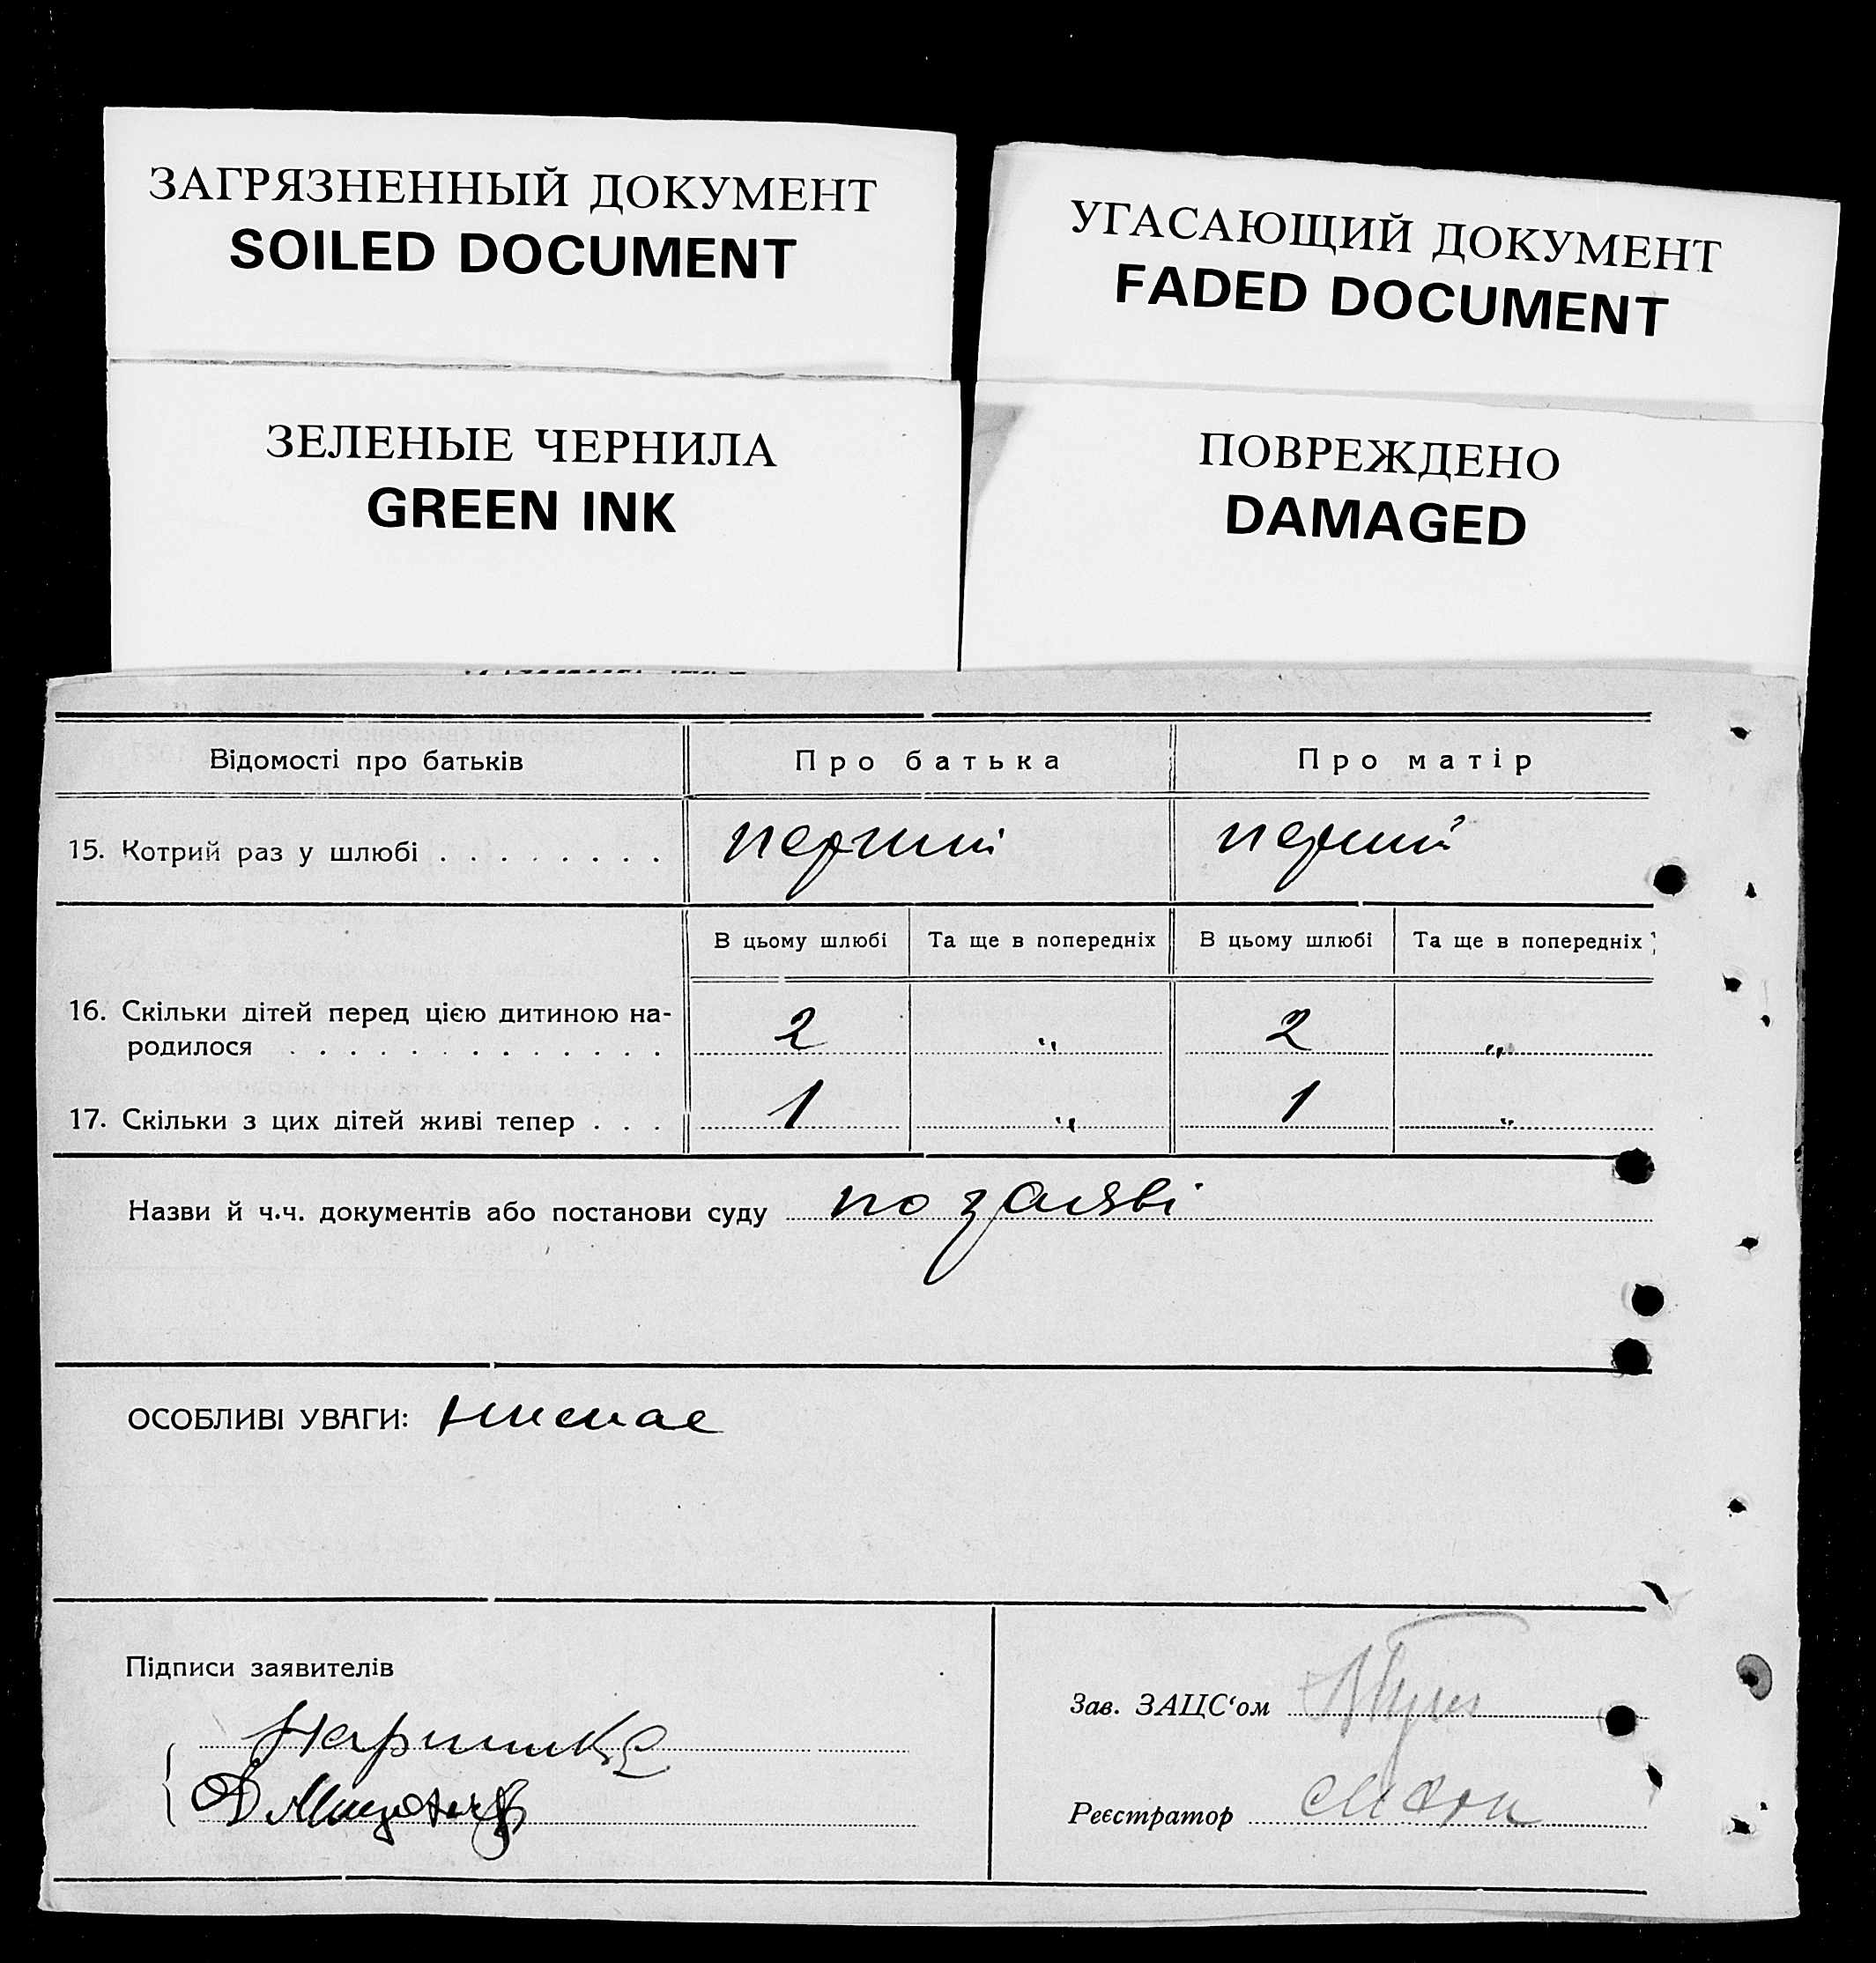 ЗАГРЯЗНЕННЫЙ ДОКУМЕНТ
SOILED DOCUMENT
УГАСАЮЩИЙ ДОКУМЕНТ
FADED DOCUMENT
ЗЕЛЕНЫЕ ЧЕРНИЛА
GREEN INK
ПОВРЕЖДЕНО
DAMAGED
Відомості про батьків Про батька Про матір
15. Котрий раз у шлюбі . . . . . . . . перший перший
В цьому шлюбі Та ще в попередніх В цьому шлюбі Та ще в попередніх
16. Скільки дітей перед цією дитиною на-
родилося . . . . . . . . . . . . . 2 „ 2 „
17. Скільки з цих дітей живі тепер . . . 1 „ 1 „
Назви й ч.ч. документів або постанови суду по заяві
ОСОБЛИВІ УВАГИ: немає
Підписи заявителів
Зав. ЗАЦС‘ом
Реєстратор